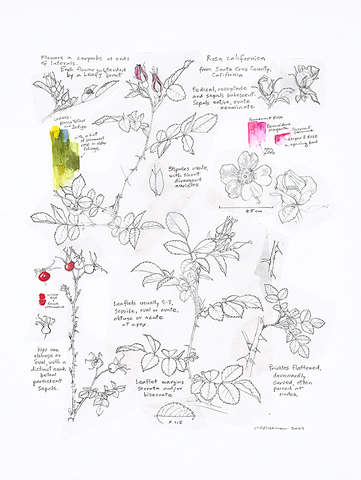 Flowers in corymbs at ends
of laterals.
Each flower subtended
by a leafy bract
Rosa californica
from Santa Cruz County,
California
Pedicel, receptacle
and sepals pubescent.
Sepals entire, ovate
acuminate
Leaves:
and Indigo
with a hint
of permanent
rose in older
foliage.
Permanent Rose
Quinacridone
magenta
Stipules ovate,
with short
divergent
auricles
4.5 cm
Leaflets usually 5-7,
sessile, oval or ovate,
obtuse or acute
at apex.
Hips are
globose or
oval, with a
distinct neck
below
persistent
sepals.
Leaflet margins
serrate and/or
biserrate
x 1.5
Prickles flattened,
downwardly
curved, often
paired at
nodes
2009